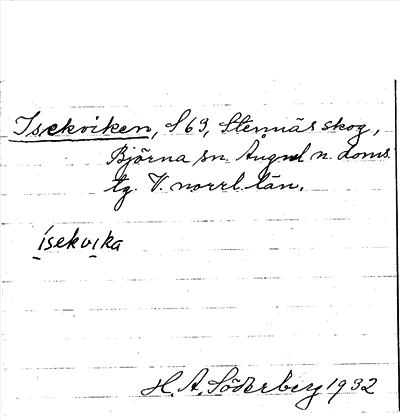 Isekviken, S 69, Stennäs skog,
Björna sn. Ångml n. doms.
tg. V. norrl. län.
isekvika
H. A. Söderberg 1932